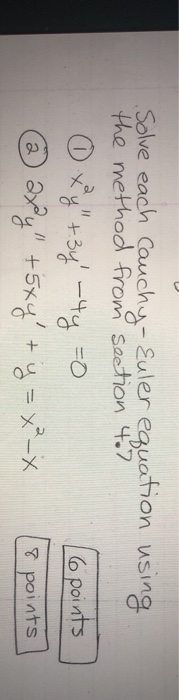 Solve each Cauchy-Euler equation using
the method from section 4.7
① x²y" + 3y' - 4y = 0
6 points
② 2x²y" + 5xy' + y = x² - x
8 points